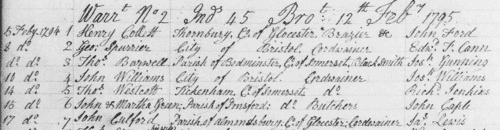 Warrt No 2 Ind 45 Brot 12th Feby 1795
5 Feby 1794 1 Henry Collett Thornbury, Co of Glocester Brazier &c John Ford
8 do 2 Geo: Spurrier City of Bristol Cordwainer Edwd T. Cann
do do 3 Thos Barwell Parish of Bedminster, C. of Somerset, Black Smith Jos: Gunning
10 do 4 John Williams City of Bristol Cordwainer Jos: Williams
14 do 5 Thos Westcott Tickenham, C. of Somerset, do Richd Jenkins
16 do 6 John & Martha Green; Parish of Butchers John Caple
17 do 7 John Parish of Almondsbury C. of Glocester: Cordwainer Jas: Lewis